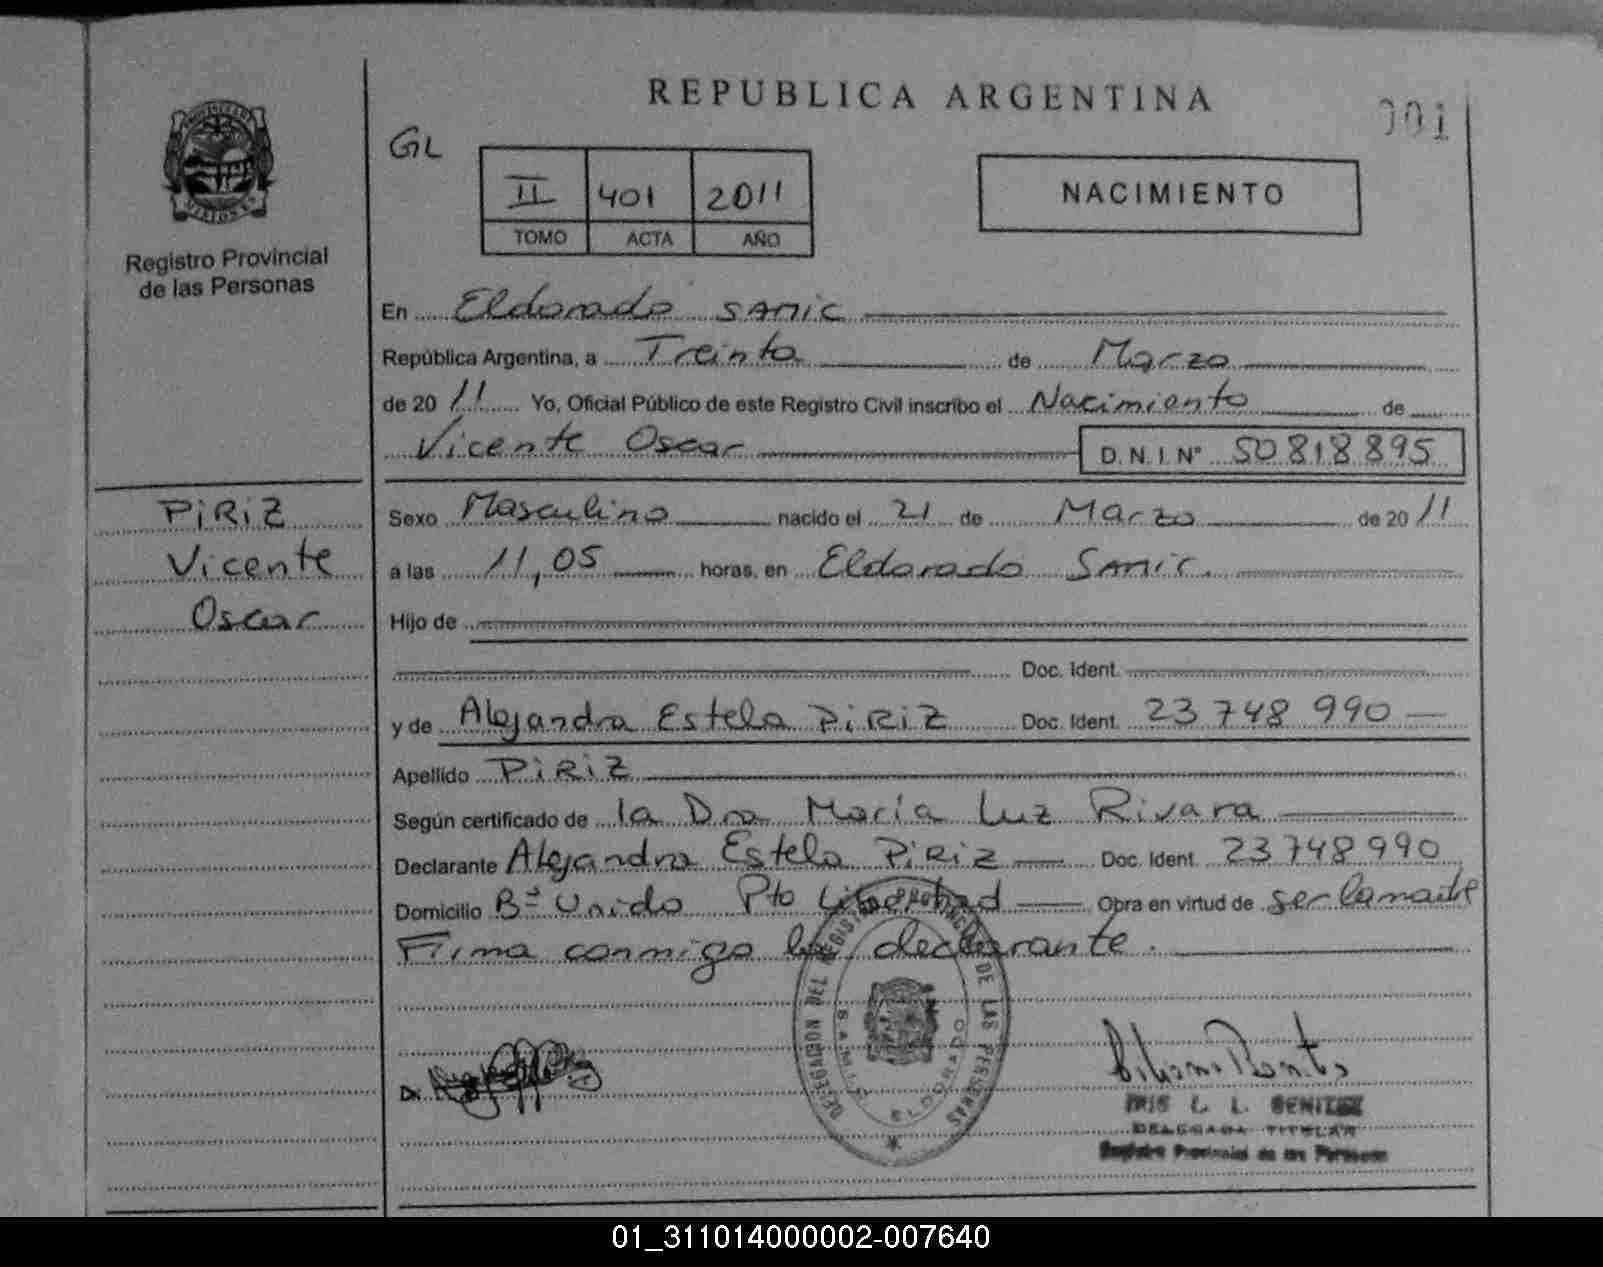 REPUBLICA ARGENTINA
001
GL
II 401 2011
TOMO ACTA AÑO
NACIMIENTO
Registro Provincial
de las Personas
En Eldorado SAMIC
República Argentina, a Treinta de Marzo
de 20 11 Yo, Oficial Público de este Registro Civil inscribo el Nacimiento de
Vicente Oscar D.N.I. N° 50818895
PiRiZ
Vicente
Oscar
Sexo Masculino nacido el 21 de Marzo de 20 11
a las 11,05 horas, en Eldorado SAMIC.
Hijo de
Doc. Ident.
y de Alejandra Estela PiRiZ Doc. Ident. 23 748 990
Apellido PiRiZ
Según certificado de la Dra María Luz Rivara
Declarante Alejandra Estela PiRiz Doc. Ident. 23748990
Domicilio Bº Unido Pto Libertad Obra en virtud de ser la madre
Firma conmigo la declarante.
DELEGACION DEL REGISTRO PROVINCIAL DE LAS PERSONAS
SAMIC ELDORADO
IRIS L. L. BENITEZ
DELEGADA TITULAR
Registro Provincial de las Personas
01_311014000002-007640